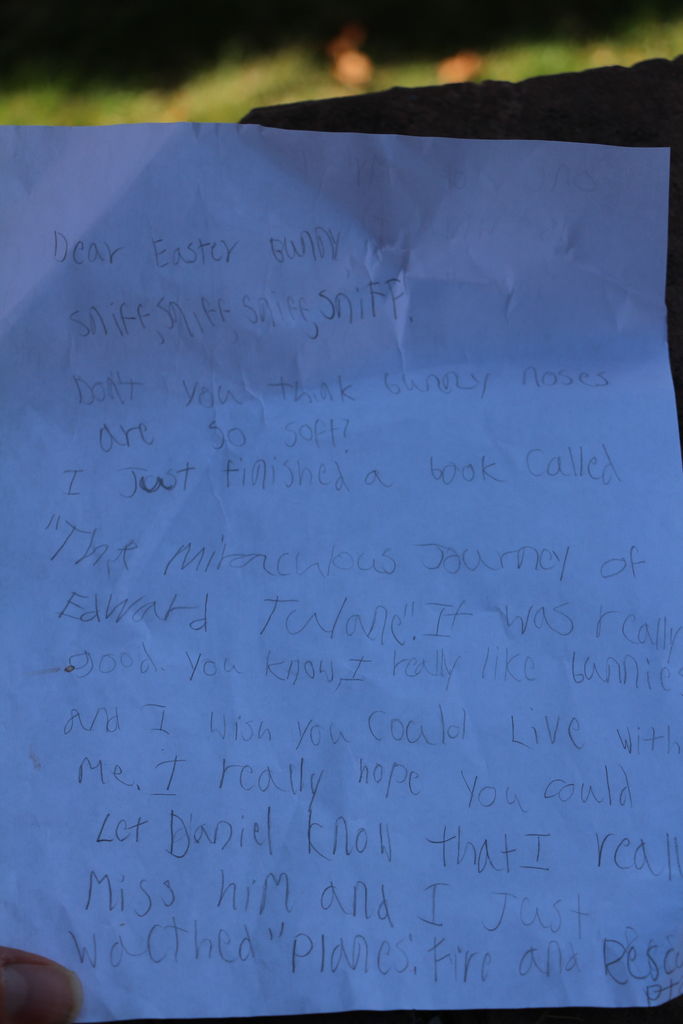 Dear Easter Bunny
Sniff, Sniff, Sniff, Sniff.
Don't you think bunny noses
are so soft?
I Just finished a book called
"The Miraculous Journey of
Edward Tulane". It was really
good. you know, I really like bunnies
and I wish you Could Live with
Me. I really hope you could
Let Daniel know that I reall
Miss him and I Just
Wacthed "Planes: Fire and Resc
pto